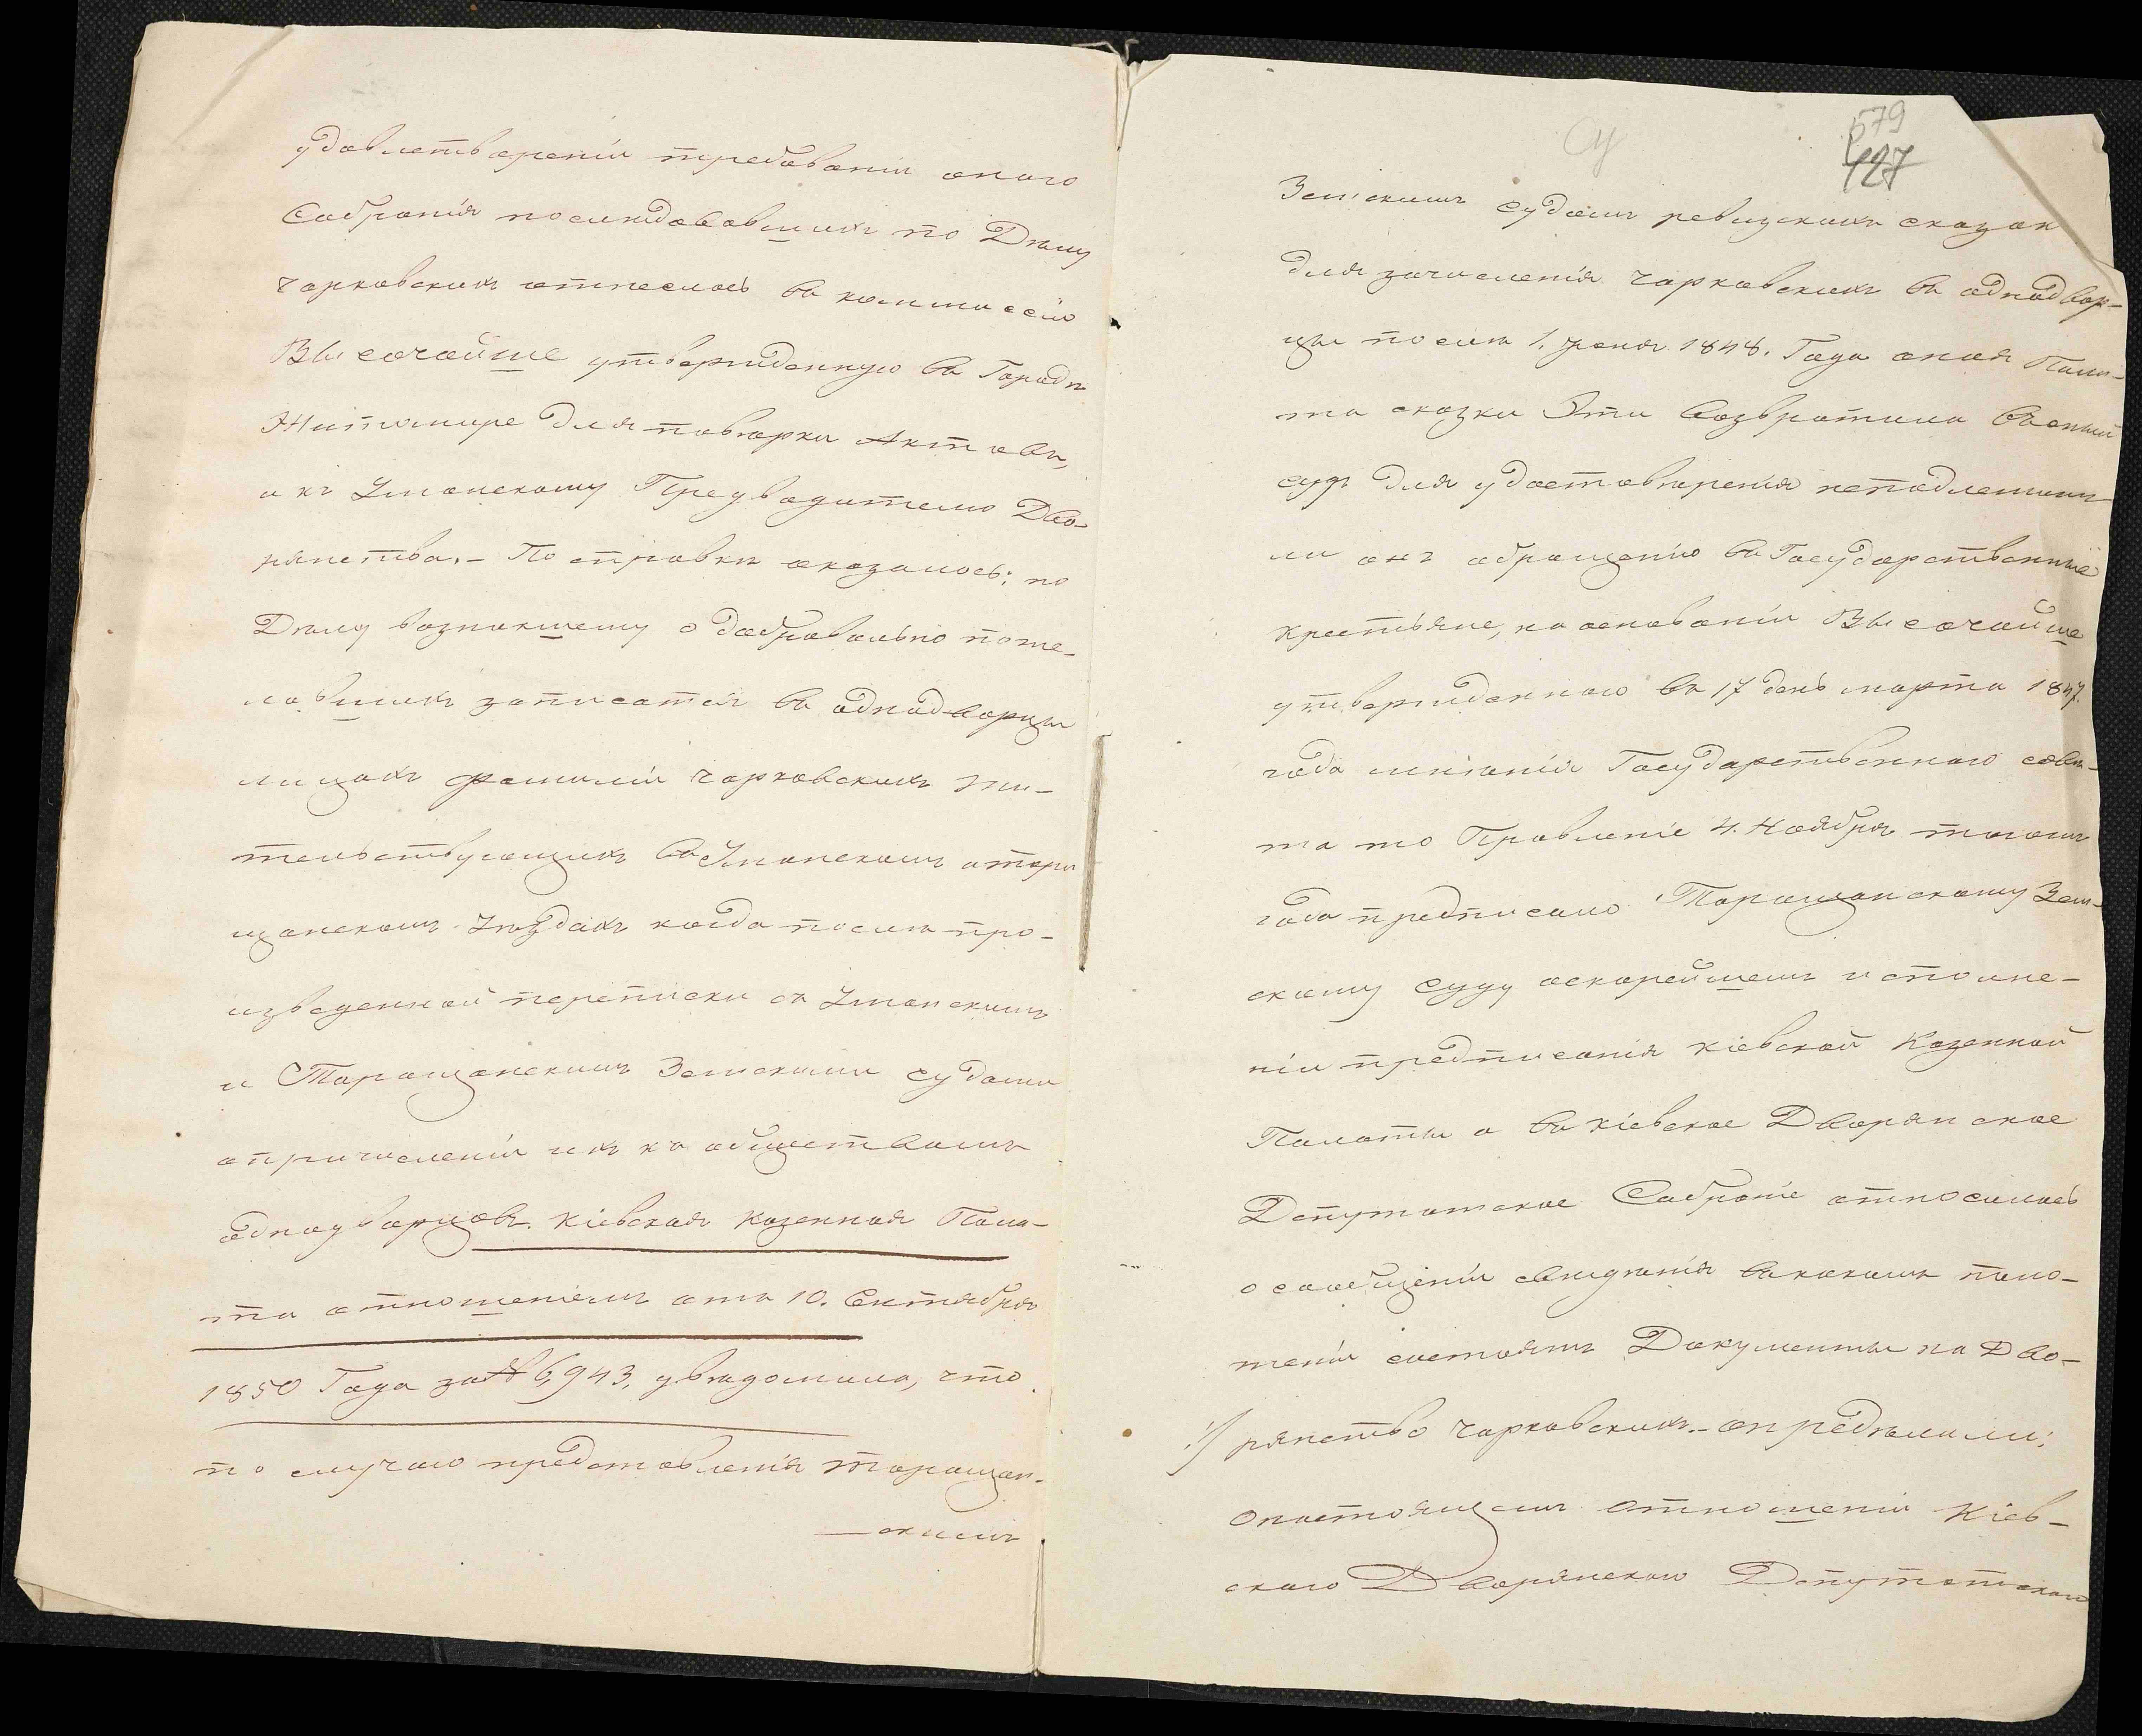 удовлетвореніи требованіи онаго
Собранія последовавшихъ по Дѣлу
Чарковскихъ отнеслось въ коммиссію
Высочайше утвержденную въ Городѣ
Житомире для поверки Актовъ,
и къ Уманскому Предводителю Дво-
рянства. - По справкѣ оказалось: по
Дѣлу возникшему о добровольно поже-
лавшихъ записатся въ однодворцы
лицахъ фамиліи Чарковскихъ жи-
тельствующихъ въ Уманскомъ и Тара
щанскомъ Уѣздахъ когда послѣ про-
изведенной переписки съ Уманскимъ
и Таращанскимъ Земскими судами
о причисленіи ихъ къ обществамъ
однодворцовъ. Кіевская Казенная Пала-
та отношеніемъ отъ 10. Сентября
1850 Года за № 6,943, увѣдомила, что
по случаю представленія Таращан-
—скимъ
579
127
Земскимъ судомъ ревизскихъ сказок
для зачисленія Чарковскихъ въ однодвор-
цы послѣ 1. Іюня 1848. Года оная Пала-
та сказки Эти возвратила въ оный
судъ для удостовѣренія неподлежатъ
ли онѣ обращенію въ Государственные
крестьяне, на основаніи Высочайше
утвержденнаго въ 17 день марта 1847.
года мнѣнія Государственнаго совѣ-
та то Правленіе 4. Ноября тогожъ
года предписало Таращанскому Зем-
скому Суду оскорейшемъ исполне-
ніи предписанія Кіевской Казенной
Палаты а въ Кіевское Дворянское
Депутатское Собраніе относилось
о сообщеніи свидѣнія въ какомъ поло-
женіи состоятъ Документы на Дво-
рянство Чарковскихъ. - опредѣлили:
О настоящемъ отношеніи Кіев-
скаго Дворянскаго Депутатскаго